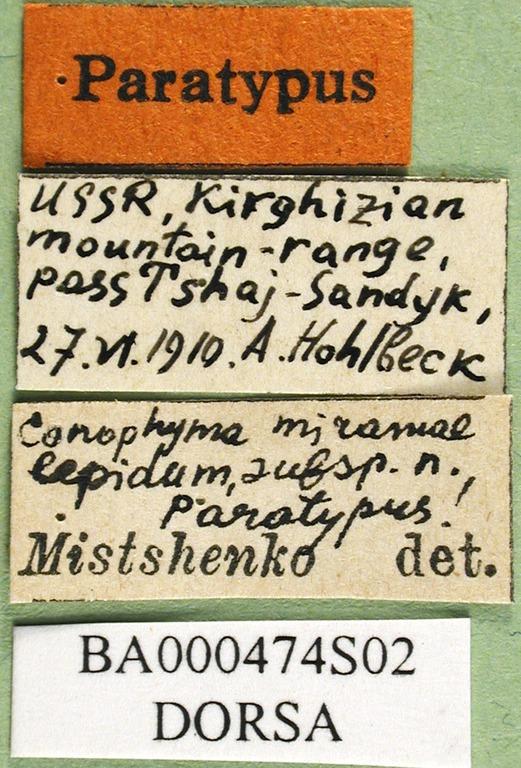 Paratypus
USSR, Kirghizian
mountain-range,
pass Tshaj-Sandyk,
27.VI.1910. A. Hohlbeck
Conophyma miramae
lepidum, subsp. n.,
Paratypus!
Mistshenko det.
BA000474S02
DORSA